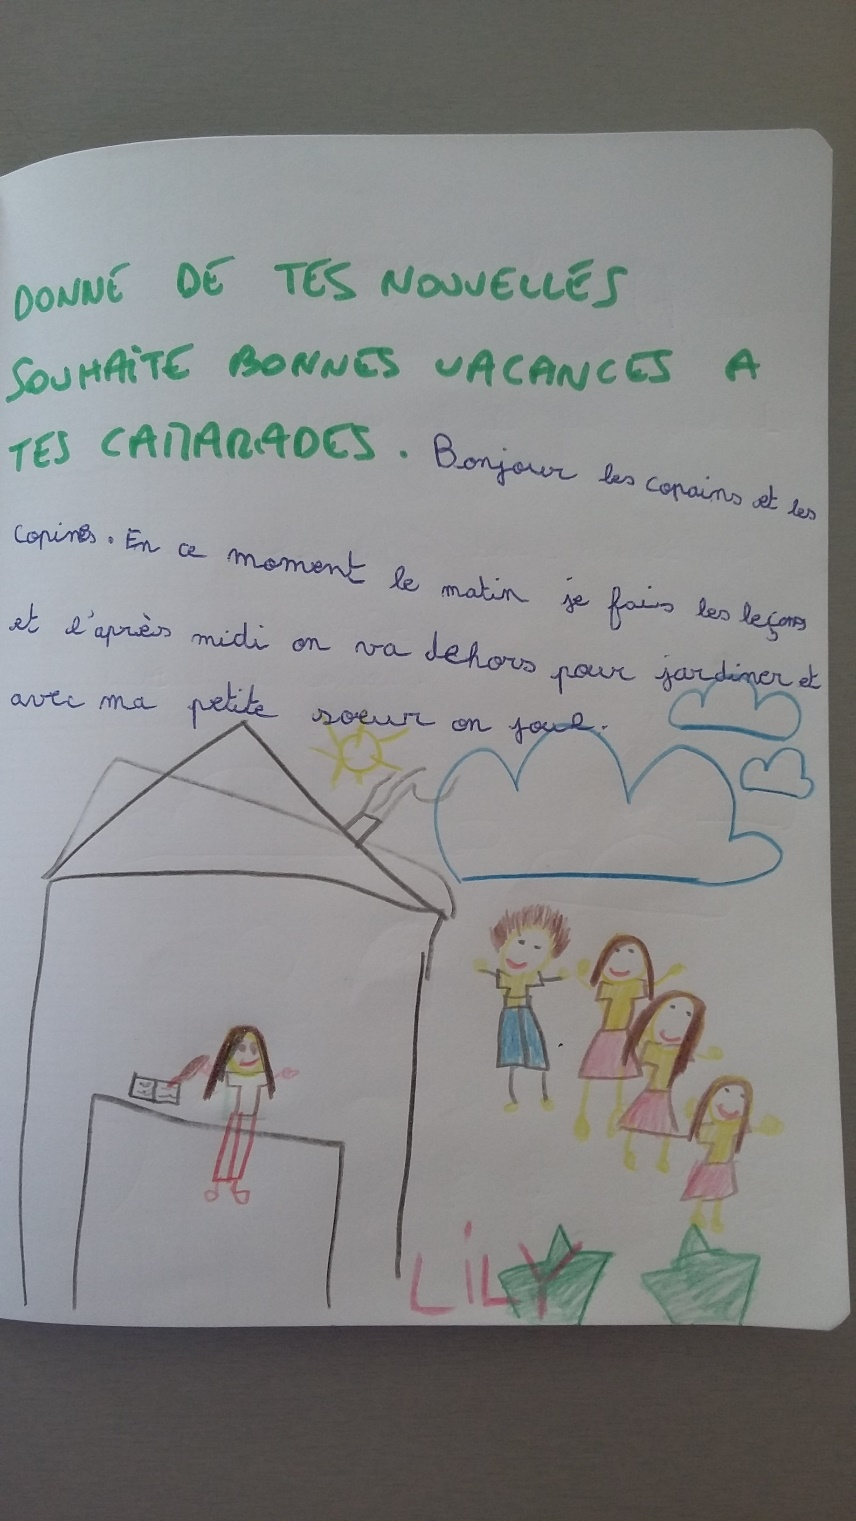 DONNE DE TES NOUVELLES
SOUHAiTE BONNES VACANCES A
TES CAMARADES. Bonjour les copains et les
copines. En ce moment le matin je fais les leçons
et l'après midi on va dehors pour jardiner et
avec ma petite soeur on joue.
LiLY